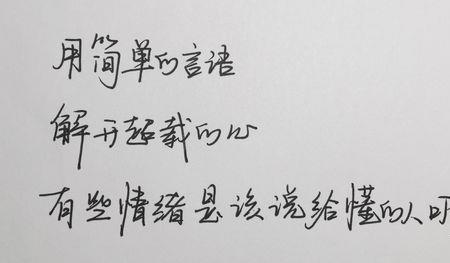 用简单的言语
解开超载的心
有些情绪是该说给懂的人